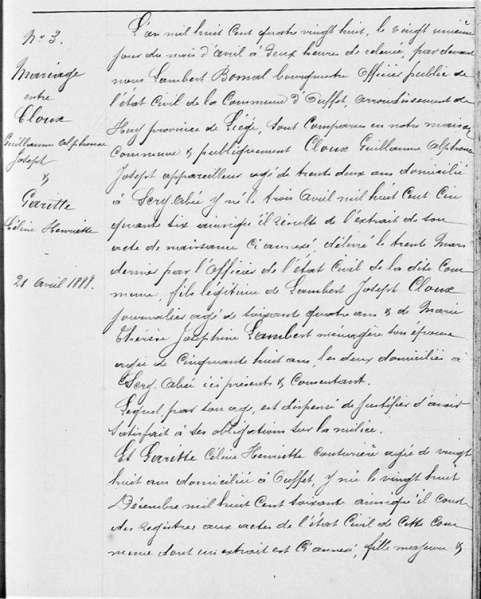 N° 3.
Mariage
entre
Cloux
Guillaume Alphonse
Joseph
&
Garette
Céline Henriette
21 Avril 1888.
L'an mil huit cent quatre vingt huit, le vingt unième
jour du mois d'avril à deux heures de relevée, par devant
nous Lambert Bonnal bourgmestre Officier public de
l'état Civil de la Commune d'Ouffet, arrondissement de
Huy province de Liége, sont comparus en notre maison
Commune & publiquement Cloux Guillaume Alphonse
Joseph appareilleur agé de trente deux ans domicilié
à Scry. Abée y né le trois Avril mil huit Cent Cin
quante six ainsi qu'il résulte de l'extrait de son
acte de naissance Ci annexé, délivré le trente Mars
dernier par l'Officier de l'état Civil de la dite Com
mune, fils légitime de Lambert Joseph Cloux
journalier agé de soixante quatre ans & de Marie
Thérèse Joséphine Lambert ménagère son épouse
agée de Cinquante huit ans, les deux domiciliés à
Scry. Abée ici présents & Consentant.
Lequel, par son age, est dispensé de justifier d'avoir
satisfait à ses obligations sur la milice.
Et Garette Céline Henriette couturière agée de vingt
huit ans domiciliée à Ouffet, y née le vingt huit
Décembre mil huit Cent soixante ainsi qu'il conste
des registres aux actes de l'état Civil de Cette Com
mune dont un extrait est Ci annexé, fille majeure &